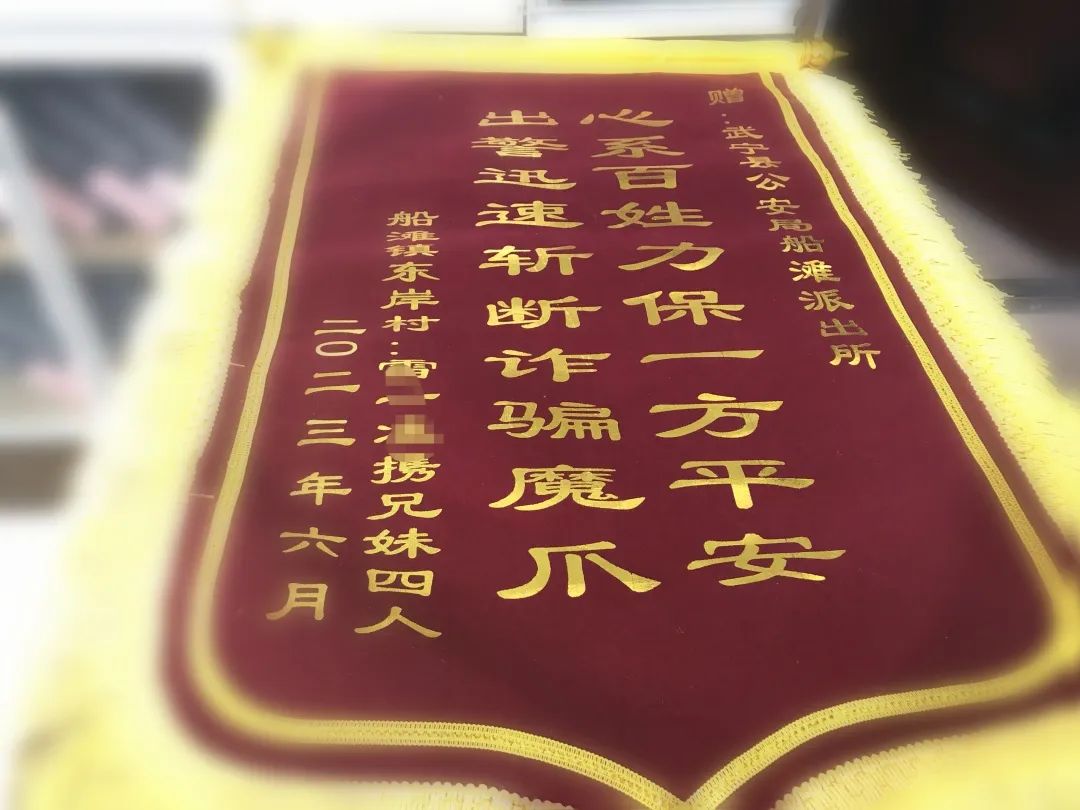 赠:武宁县公安局船滩派出所
心系百姓力保一方平安
出警迅速斩断诈骗魔爪
船滩镇东岸村:雷 携兄妹四人
二〇二三年六月